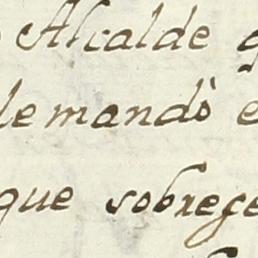 Alcalde q
le mandò e
que sobreçe